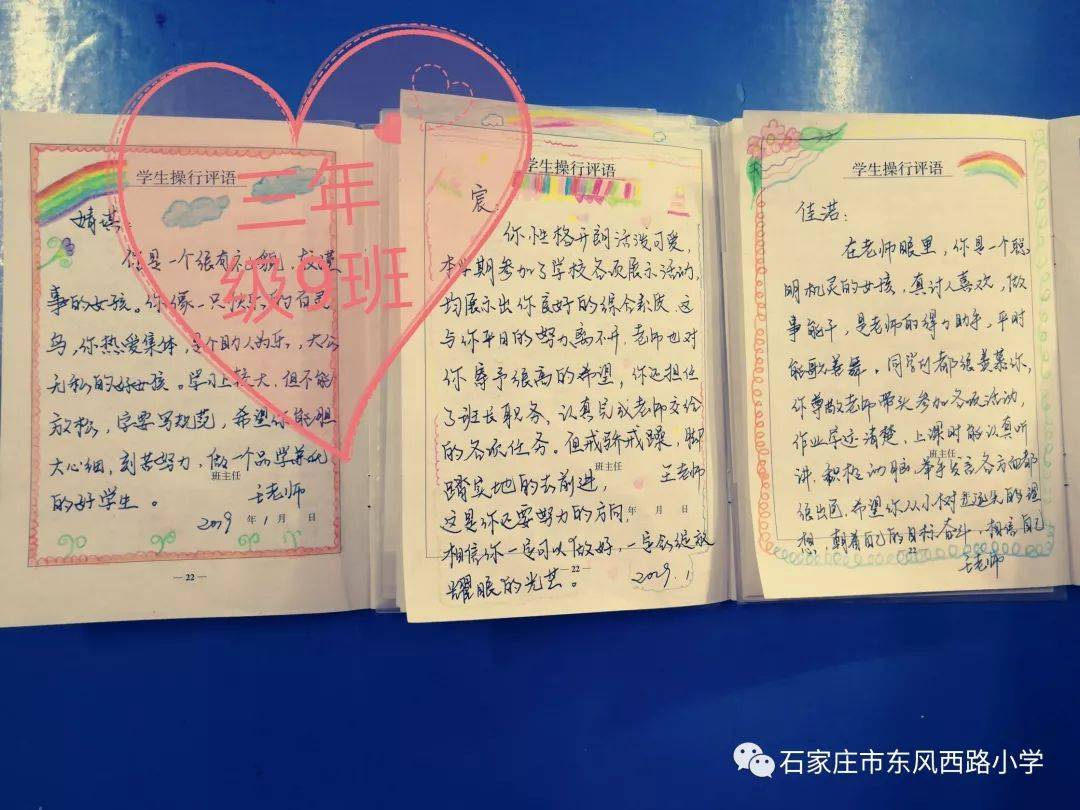 三年
级9班
学生操行评语
婧琪：
你是一个很有礼貌，较懂
事的女孩。你像一只快乐的百灵
鸟，你热爱集体，是个助人为乐，大公
无私的好女孩。学习上较大，但不能
放松，字要写规范，希望你能胆
大心细，刻苦努力，做一个品学兼优
班主任
的好学生。
王老师
2019年1月 日
— 22 —
学生操行评语
宸：
你性格开朗活泼可爱，
本学期参加了学校各项展示活动，
均展示出你良好的综合素质，这
与你平日的努力离不开，老师也对
你寄予很高的希望，你还担任
了班长职务，认真完成老师交给
的各项任务。但戒骄戒躁，脚
班主任
踏实地的去前进，
王老师
这是你还要努力的方向，
年 月 日
相信你一定可以做好，一定会绽放
— 22 —
耀眼的光芒。
2019.1
学生操行评语
佳诺：
在老师眼里，你是一个聪
明机灵的女孩，真讨人喜欢，做
事能干，是老师的得力助手，平时
能歌善舞。同学们都很羡慕你，
你尊敬老师带头参加各项活动，
作业字迹清楚，上课时能认真听
班主任
讲，积极动脑，举手发言各方面都
很出色，希望你从小树立远大的理
想，朝着自己的目标奋斗，相信自己
22
王老师
石家庄市东风西路小学